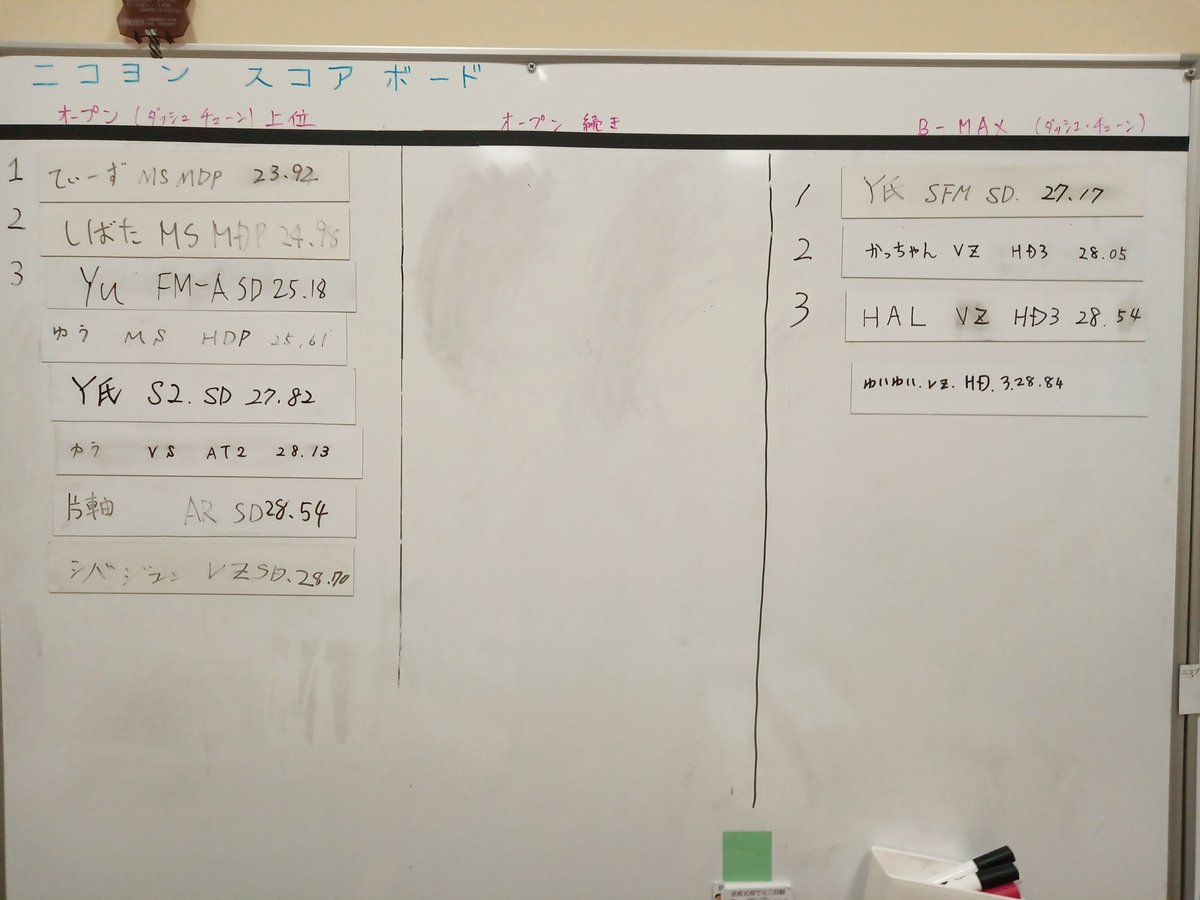 ニコヨン スコアボード
オープン (ダッシュ チューン) 上位
1 てぃーず MS MDP 23.92
2 しばた MS MDP 24.98
3 Yu FM-A SD 25.18
ゆう MS HDP 25.61
Y氏 S2. SD 27.82
ゆう VS AT2 28.13
片軸 AR SD 28.54
シバジュン VZ SD. 28.70
オープン 続き
B-MAX (ダッシュ・チューン)
1 Y氏 SFM SD. 27.17
2 かっちゃん VZ HD3 28.05
3 HAL VZ HD3 28.54
ゆいゆい. VZ. HD. 3. 28.84